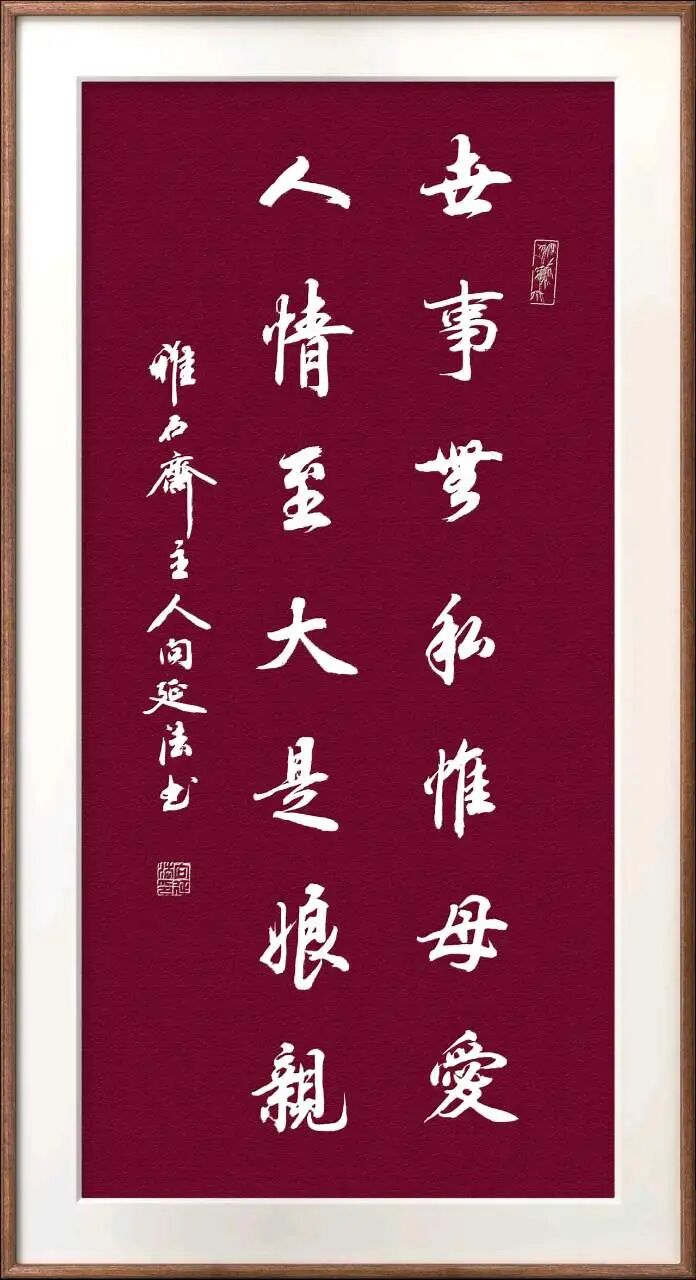 世事無私惟母愛
人情至大是娘親
雅石齋主人向延法书